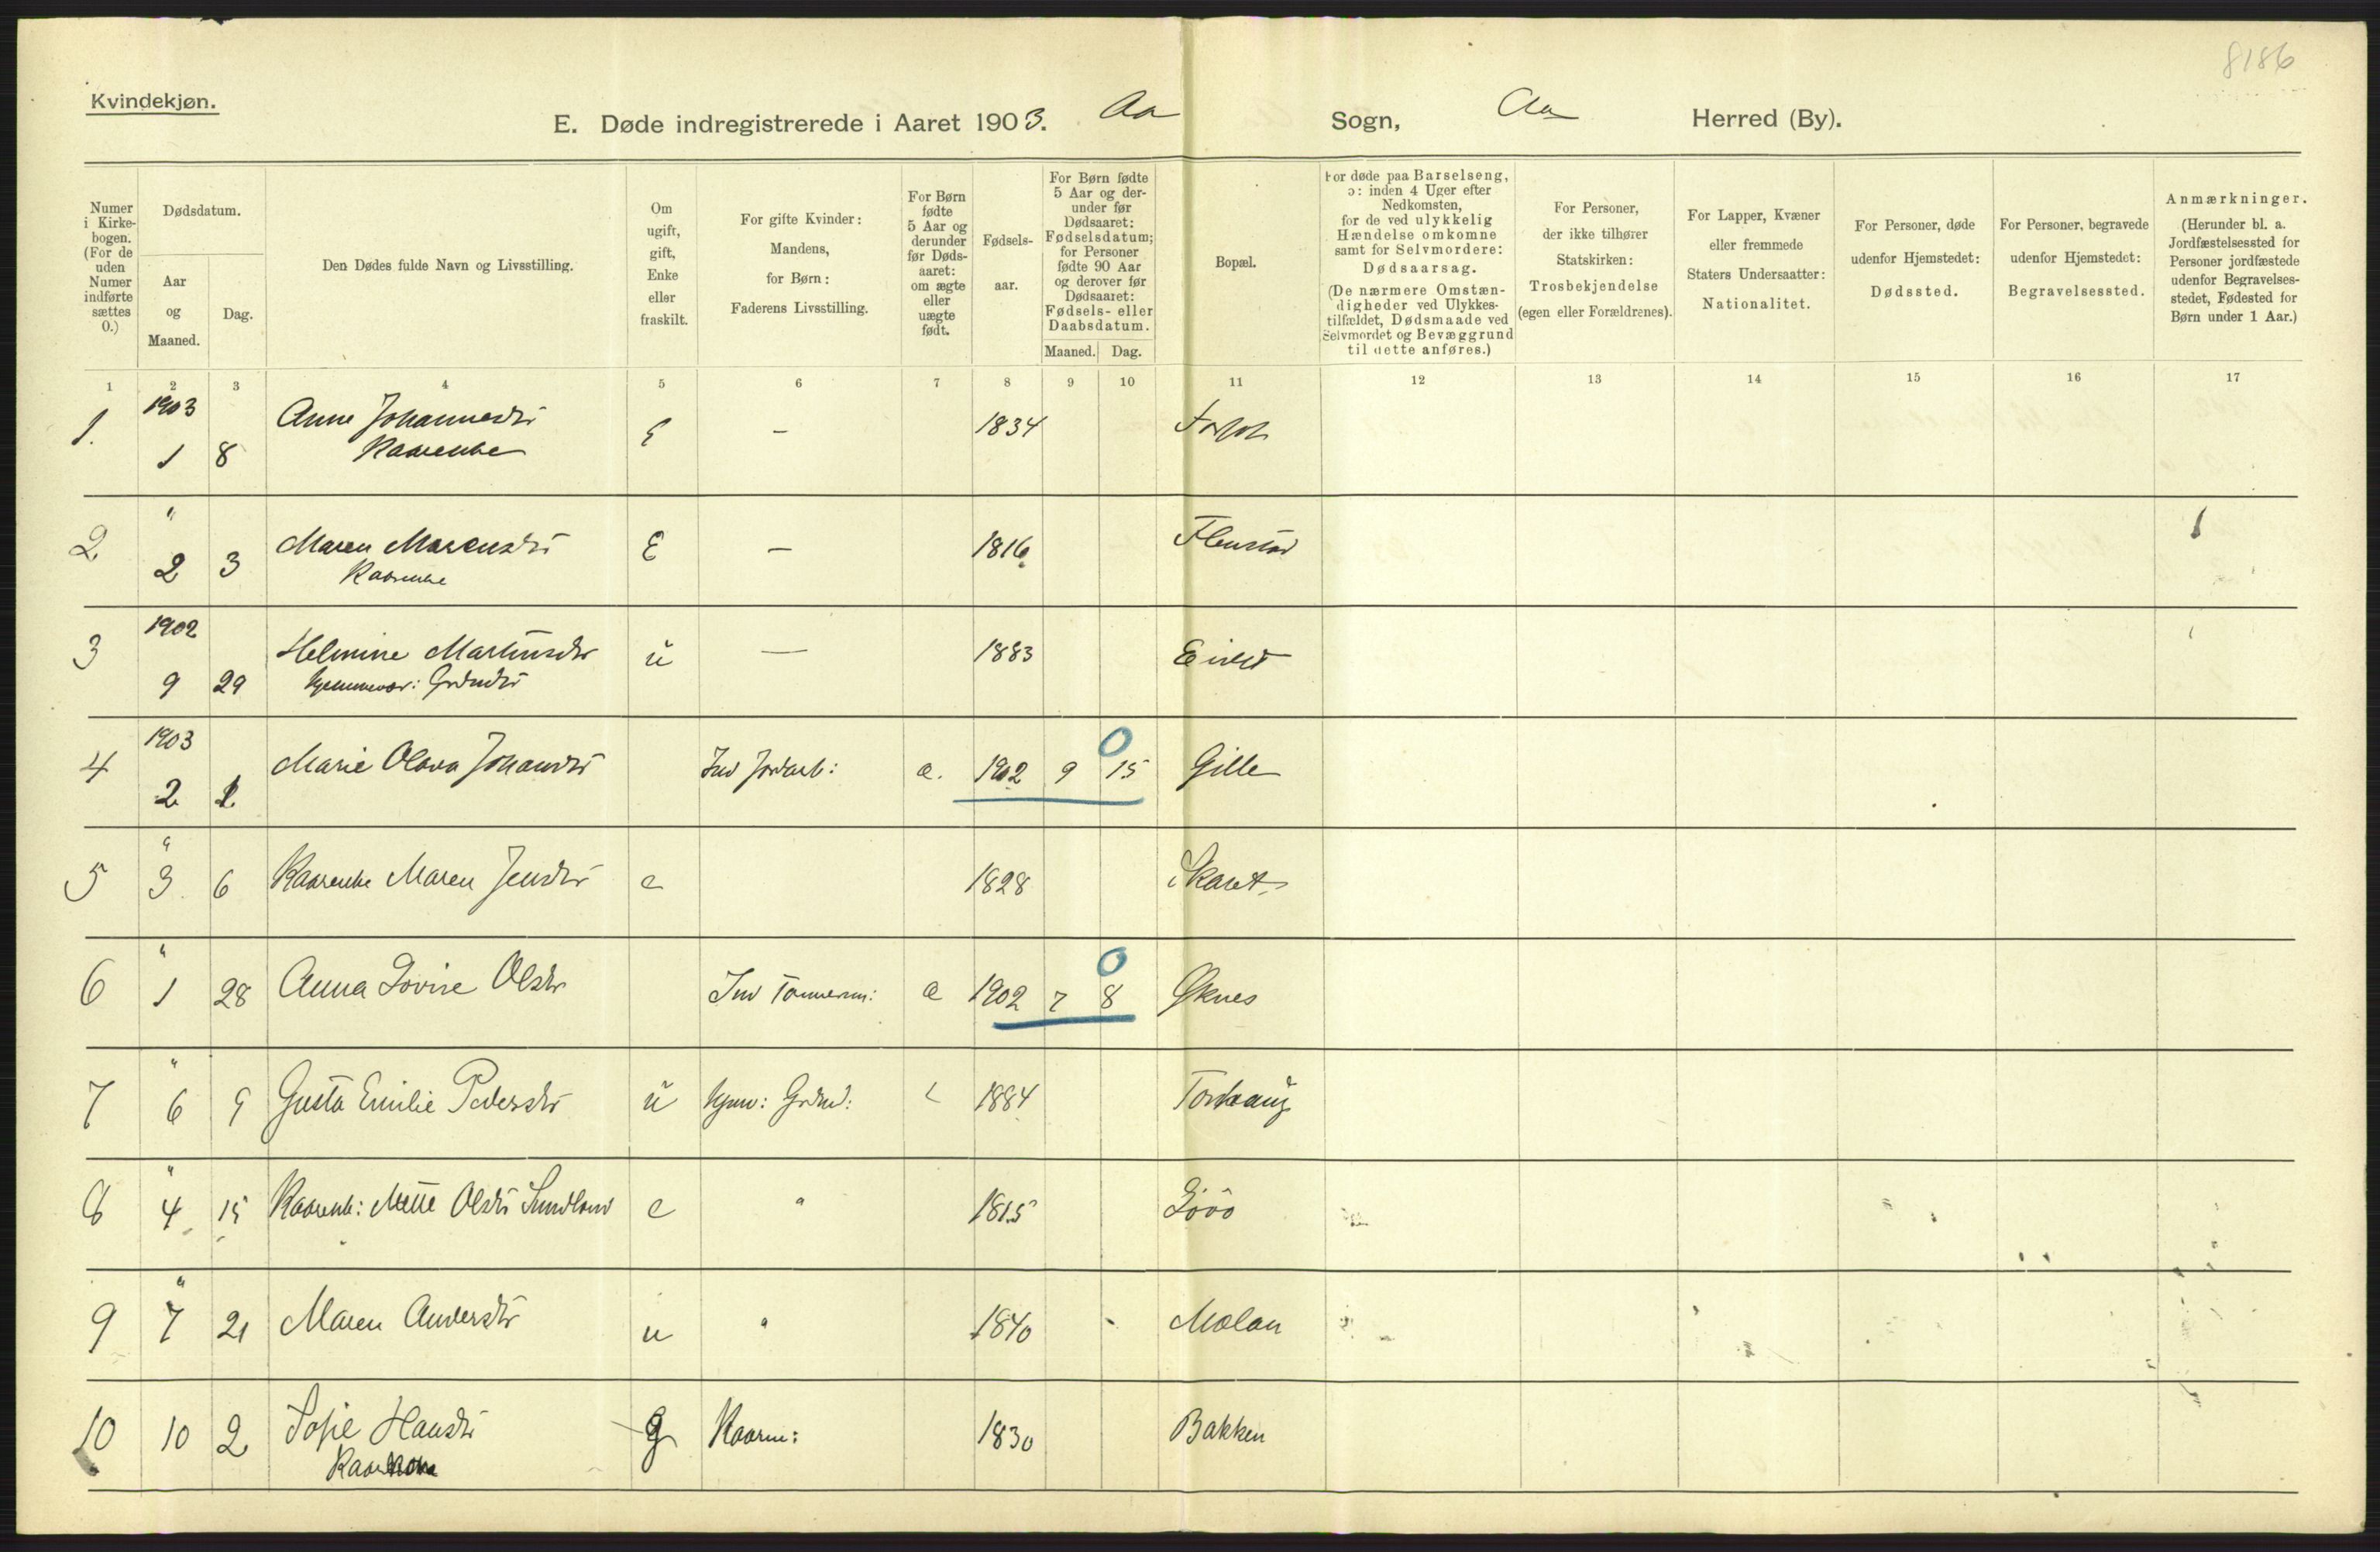 8186
Kvindekjøn.
E. Døde indregistrerede i Aaret 1903. Aa Sogn, Aa Herred (By).
Numer i Kirkebogen. (For de uden Numer indførte sættes 0.)
Dødsdatum.
Aar og Maaned.
Dag.
Den Dødes fulde Navn og Livsstilling.
Om ugift, gift, Enke eller fraskilt.
For gifte Kvinder: Mandens, for Børn: Faderens Livsstilling.
For Børn fødte 5 Aar og derunder før Dødsaaret: om ægte eller uægte født.
Fødselsaar.
For Børn fødte 5 Aar og derunder før Dødsaaret: Fødselsdatum; for Personer fødte 90 Aar og derover før Dødsaaret: Fødsels- eller Daabsdatum.
Maaned. Dag.
Bopæl.
For døde paa Barselseng, ɔ: inden 4 Uger efter Nedkomsten, for de ved ulykkelig Hændelse omkomne samt for Selvmordere: Dødsaarsag. (De nærmere Omstændigheder ved Ulykkestilfældet, Dødsmaade ved Selvmordet og Bevæggrund til dette anføres.)
For Personer, der ikke tilhører Statskirken: Trosbekjendelse (egen eller Forældrenes).
For Lapper, Kvæner eller fremmede Staters Undersaatter: Nationalitet.
For Personer, døde udenfor Hjemstedet: Dødssted.
For Personer, begravede udenfor Hjemstedet: Begravelsessted.
Anmærkninger. (Herunder bl. a. Jordfæstelsessted for Personer jordfæstede udenfor Begravelsesstedet, Fødested for Børn under 1 Aar.)
1 2 3 4 5 6 7 8 9 10 11 12 13 14 15 16 17
1. 1903 1 8 Anne Johannesdtr Kaarenke E – 1834
2 " 2 3 Maren Marensdtr Kaarenke E – 1816 Flenstad
3 1902 9 29 Helmine Martinsdtr u — 1883
4 1903 2 1 Marie Olava Johansdtr Ind Jordarb: æ. 1902 9 15 0 Gille
5 " 3 6 Kaarenke Maren Jensdtr e 1828 Skaret
6 " 1 28 Anna Lovise Olsdtr Ind Tømmerm: æ 1902 7 8 0 Øknes
7 " 6 9 Gusta Emilie Pedersdtr u Hjem: Grdmd: 1884
8 " 4 15 Kaarenk: Mette Olsdtr Sundland e " 1815
9 " 7 21 Maren Andersdtr u " 1840 Molan
10 10 2 Sofie Hansdtr Kaarkone g Kaarm: 1830 Bakken